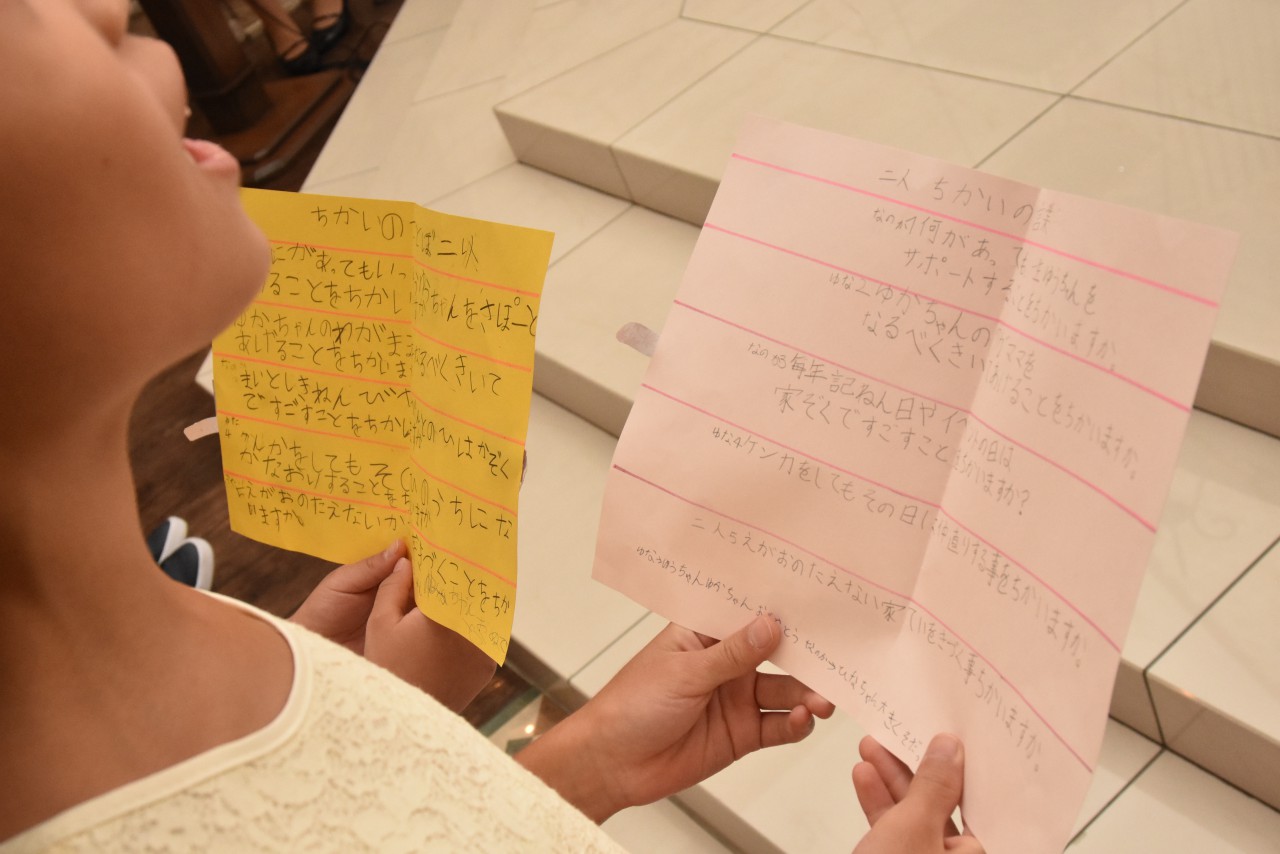 ちかいのことば二人
にがあってもいつ ちゃんを、さぽーと
ることをちかい
ゆかちゃんのわがまま なるべくきいて
あげることをちかいま
まいとしきねんびや との ひはかぞく
ですごすことをちかいますか
けんかをしてもそのひのうちにな
かなおりすることをち ますか
えがおのたえないか づくことをちか
いますか。
二人 ちかいの言
なのか1何があっても ちゃんを
サポートする ことをちかいますか。
ゆな2ゆかちゃんの ワガママを
なるべくきい てあげることをちかいますか。
なのか3毎年記ねん日やイベントの日は
家ぞくですごすこと をちかいますか?
ゆな4ケンカをしてもその日に仲直りする事をちかいますか。
二人5えがおのたえない家ていをきづく事ちかいますか。
ゆな ちゃんゆかちゃん おめでとう なのか ひなちゃん大きくそだ